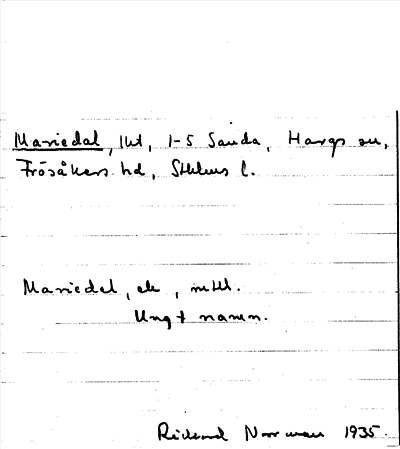 Mariedal, lht, 1-5 Sanda, Hargs sn,
Frösåkers hd, Sthlms l.
Mariedal,
Ungt namn.
Rickard Norrman 1935.